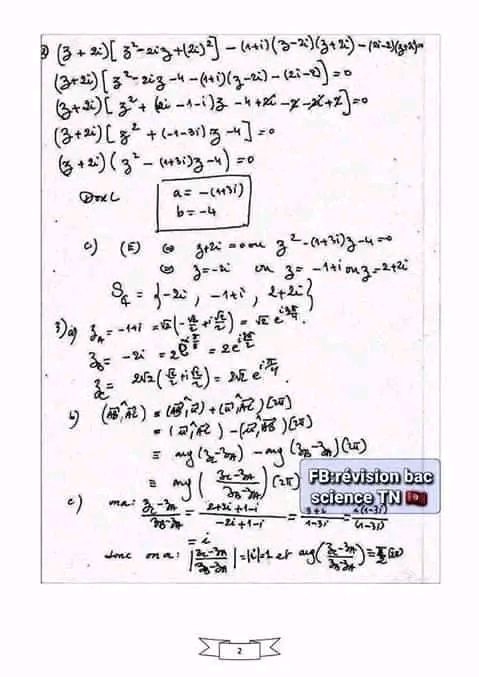 (z + 2i)[z² - 2iz + (2i)²] - (1+i)(z-2i)(z+2i) - (2i-2)(z+2i)=0
(z+2i)[z² - 2iz - 4 - (1+i)(z-2i) - (2i-2)]=0
(z+2i)[z² + (2i - 1 - i)z - 4 + 2i - 2 - 2i + 2]=0
(z+2i)[z² + (-1-3i)z - 4] = 0
(z+2i)(z² - (1+3i)z - 4) = 0
Donc
a = -(1+3i)
b = -4
c) (E) ⇔ z+2i = 0 ou z² - (1+3i)z - 4 = 0
⇔ z = -2i ou z = -1+i ou z = 2+2i
S = {-2i, -1+i, 2+2i}
3) a) z_A = -1+i = √2(-√2/2 + i√2/2) = √2 e^(i3π/4)
z_B = -2i =
z_C = 2√2(√2/2 + i√2/2) = 2√2 e^(iπ/4).
b) (AB, AC) ≡ (AB, u) + (u, AC)[2π]
≡ (u, AC) - (u, AB)[2π]
≡ arg(z_C - z_A) - arg(z_B - z_A)(2π)
≡ arg((z_C - z_A)/(z_B - z_A))(2π)
FB:révision bac
science TN 🇹🇳
c) ona: (z_C - z_A)/(z_B - z_A) = (2+2i+1-i)/(-2i+1-i) = (3+i)/(1-3i) = i(1-3i)/(1-3i)
= i
donc on a: |(z_C - z_A)/(z_B - z_A)| = |i| = 1 et arg((z_C - z_A)/(z_B - z_A)) ≡ π/2 (2π)
2